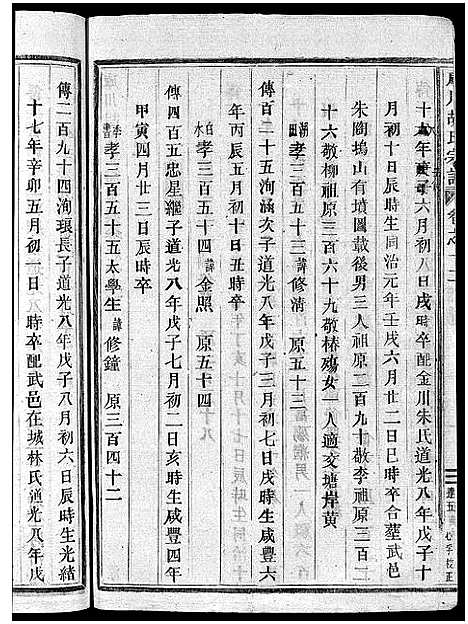 川胡氏宗譜 卷之十二
十年庚子六月初八日戌時卒配金川朱氏道光八年戊子十
月初十日辰時生同治元年壬戌六月廿二日巳時卒合墓武邑
朱陶塢山有墳圖載後男三人祖原二百九十敬李祖原三百二
十六敬柳祖原三百六十九敬椿殤女一人適交塘岸黃
湖田 孝三百五十三 諱 修清 原五十三
傳百二十五洵涵次子道光八年戊子三月初七日戌時生咸豐六
年丙辰五月初十日丑時卒
白水 孝三百五十四 諱 金照 原五十四
傳四百五忠星繼子道光八年戊子七月初二日亥時生咸豐四年
甲寅四月廿三日辰時卒
孝三百五十五太學生 諱 修鐘 原三百四十二
傳二百九十四洵琅長子道光八年戊子八月初六日辰時生光緒
十七年辛卯五月初一日 時卒配武邑在城林氏道光八年戊